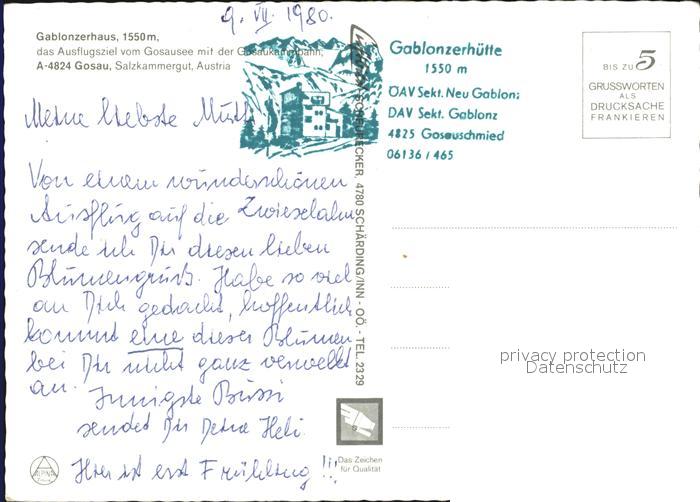 9. VII. 1980.
Gablonzerhaus, 1550 m,
das Ausflugsziel vom Gosausee mit der Gosaukammbahn,
A-4824 Gosau, Salzkammergut, Austria
Gablonzerhütte
1550 m
ÖAV Sekt. Neu Gablonz
DAV Sekt. Gablonz
4825 Gosauschmied
06136 / 465
BIS ZU 5
GRUSSWORTEN
ALS
DRUCKSACHE
FRANKIEREN
Meine liebste Mutti
Von einem wunderschönen
Ausflug auf die Zwieselalm
sende ich Dir diesen lieben
Blumengruß. Habe so viel
an Dich gedacht, hoffentlich
kommt eine dieser Blumen
bei Dir nicht ganz verwelkt
an. Innigste Bussi
sendet Dir Deine Heli
Hier ist erst Frühling!!!
4780 SCHÄRDING/INN - OÖ. - TEL. 2329
ALPINA
Das Zeichen
für Qualität
privacy protection
Datenschutz